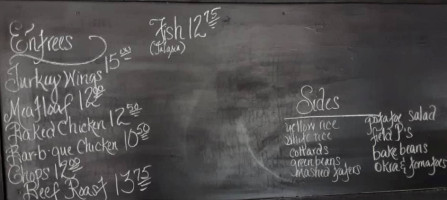 Entrees
Turkey Wings 15.00
Meatloaf 12.00
Baked Chicken 12.50
Bar-b-que Chicken 10.50
Chops 12.00
Beef Roast 13.75
Fish 12.75
(Talapia)
Sides
yellow rice
white rice
collards
green beans
mashed taters
potatoe salad
field P's
bake beans
Okra & tomatoes